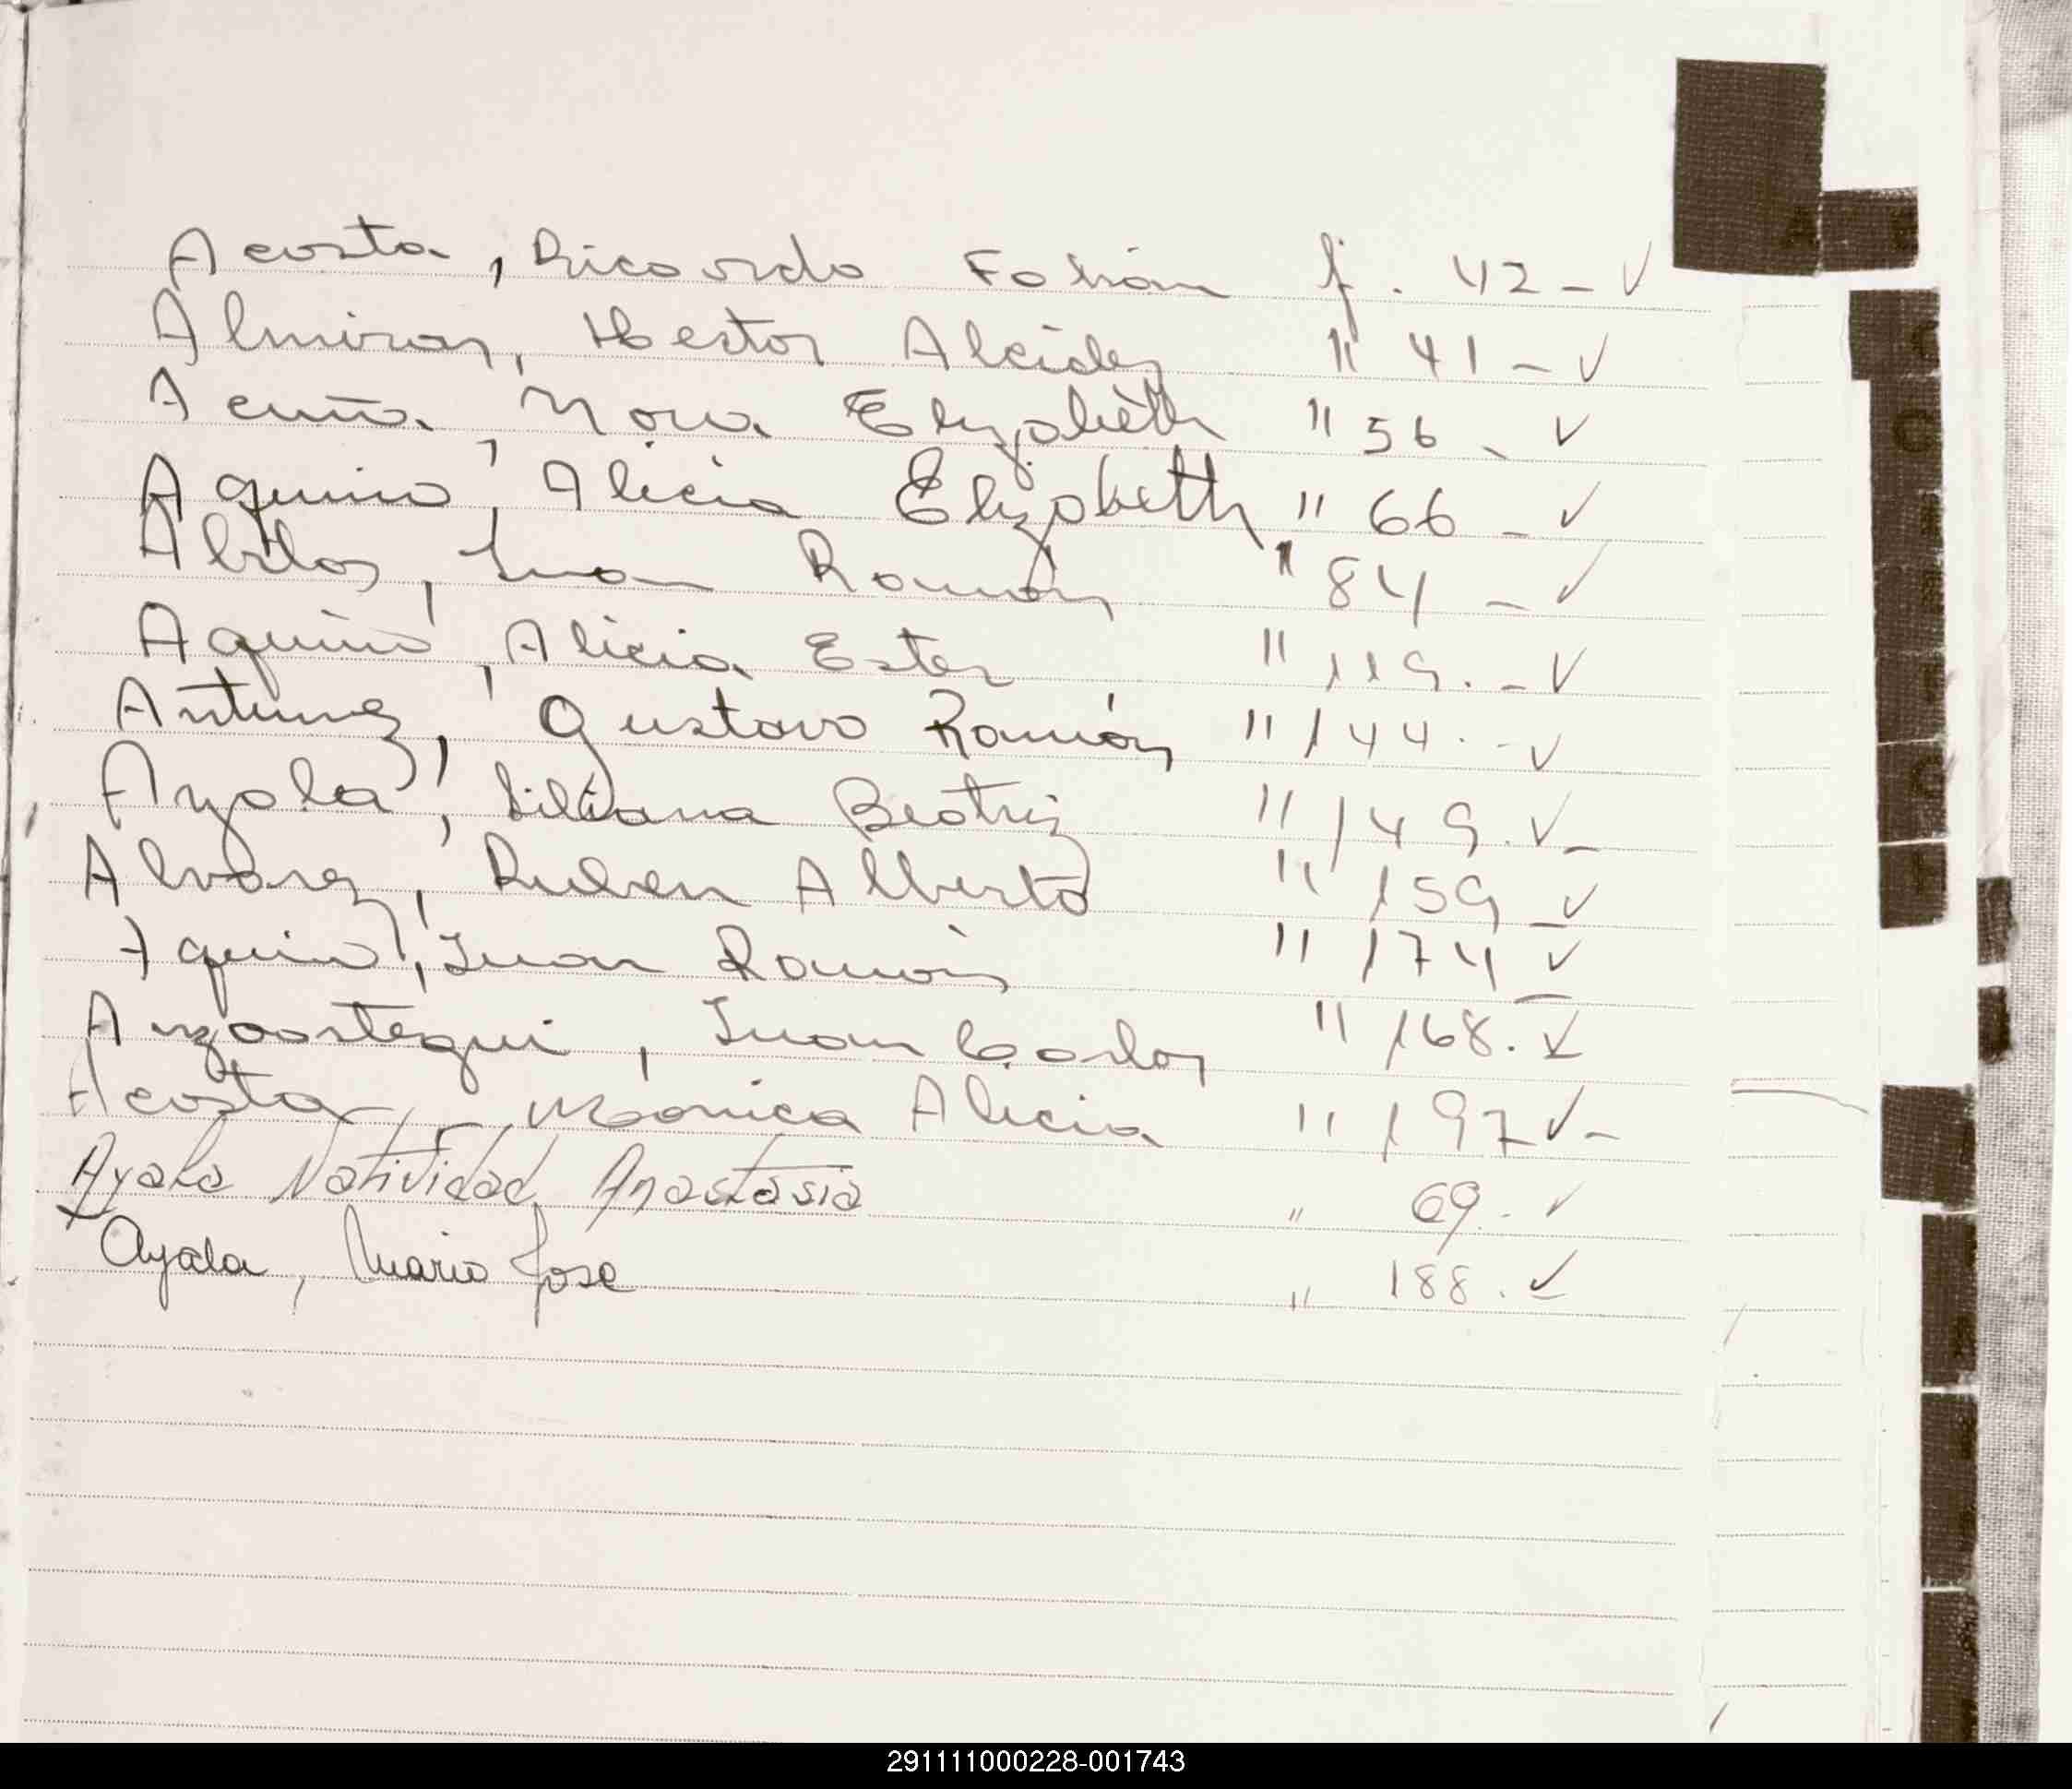 Acosta, Ricardo Fabián f. 42 - ✓
Almiron, Hector Alcides " 41 - ✓
Acuña, Nora Elizabeth " 56 - ✓
Aquino, Alicia Elizabeth " 66 - ✓
Juan Ramón " 84 - ✓
Aquino, Alicia Ester " 119. - ✓
Antunez, Gustavo Ramón " 144. - ✓
Ayala, Liliana Beatriz " 149. ✓ -
Alvarez, Ruben Alberto " 159 - ✓
Aquino, Juan Ramón " 174 ✓
Anzoastegui, Juan Carlos " 168. ✓
Acosta, Mónica Alicia " 197 ✓ -
Ayala Natividad Anastasia " 69. - ✓
Ayala, Mario Jose " 188. ✓
291111000228-001743